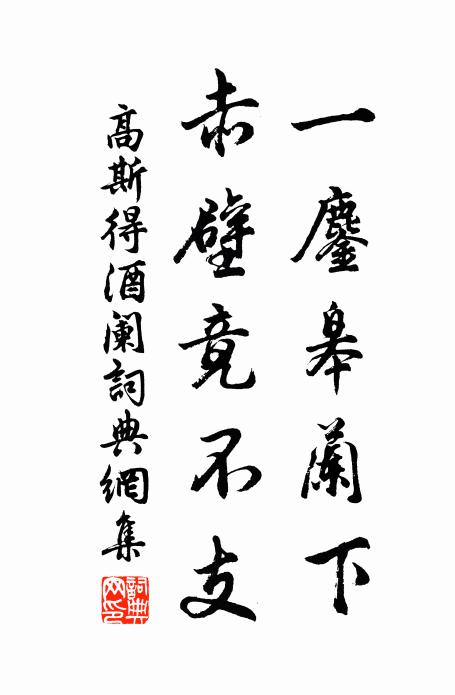 一鏖皋蘭下
赤壁竟不支
高斯得酒闌詞典網集
詞典網印